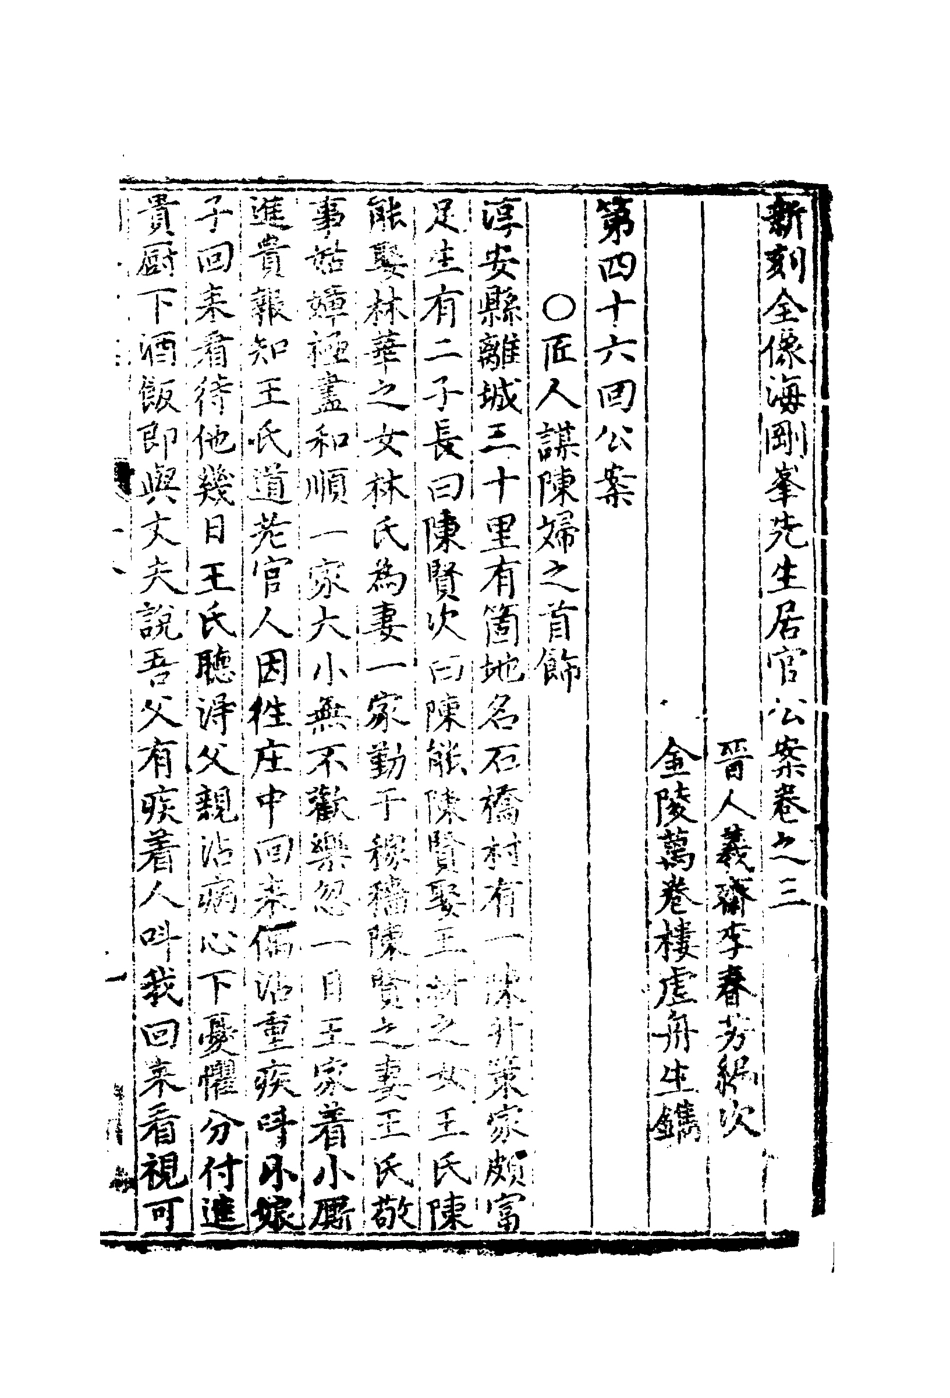 新刻全像海剛峯先生居官公案卷之三
晉人羲齋李春芳編次
金陵萬卷樓虛舟生鐫
第四十六回公案
○匠人謀陳婦之首飾
淳安縣離城三十里有箇地名石橋村有一陳升策家頗富
足生有二子長曰陳賢次曰陳能陳賢娶王封之女王氏陳
能娶林華之女林氏為妻一家勤于稼穡陳賢之妻王氏敬
事姑嫜極盡和順一家大小無不歡樂忽一日王家着小厮
進貴報知王氏道老官人因往庄中回来偶沾重疾呌小娘
子回来看待他幾日王氏聽淂父親沾病心下憂懼分付進
貴厨下酒飯即與丈夫說吾父有疾着人呌我回来看視可